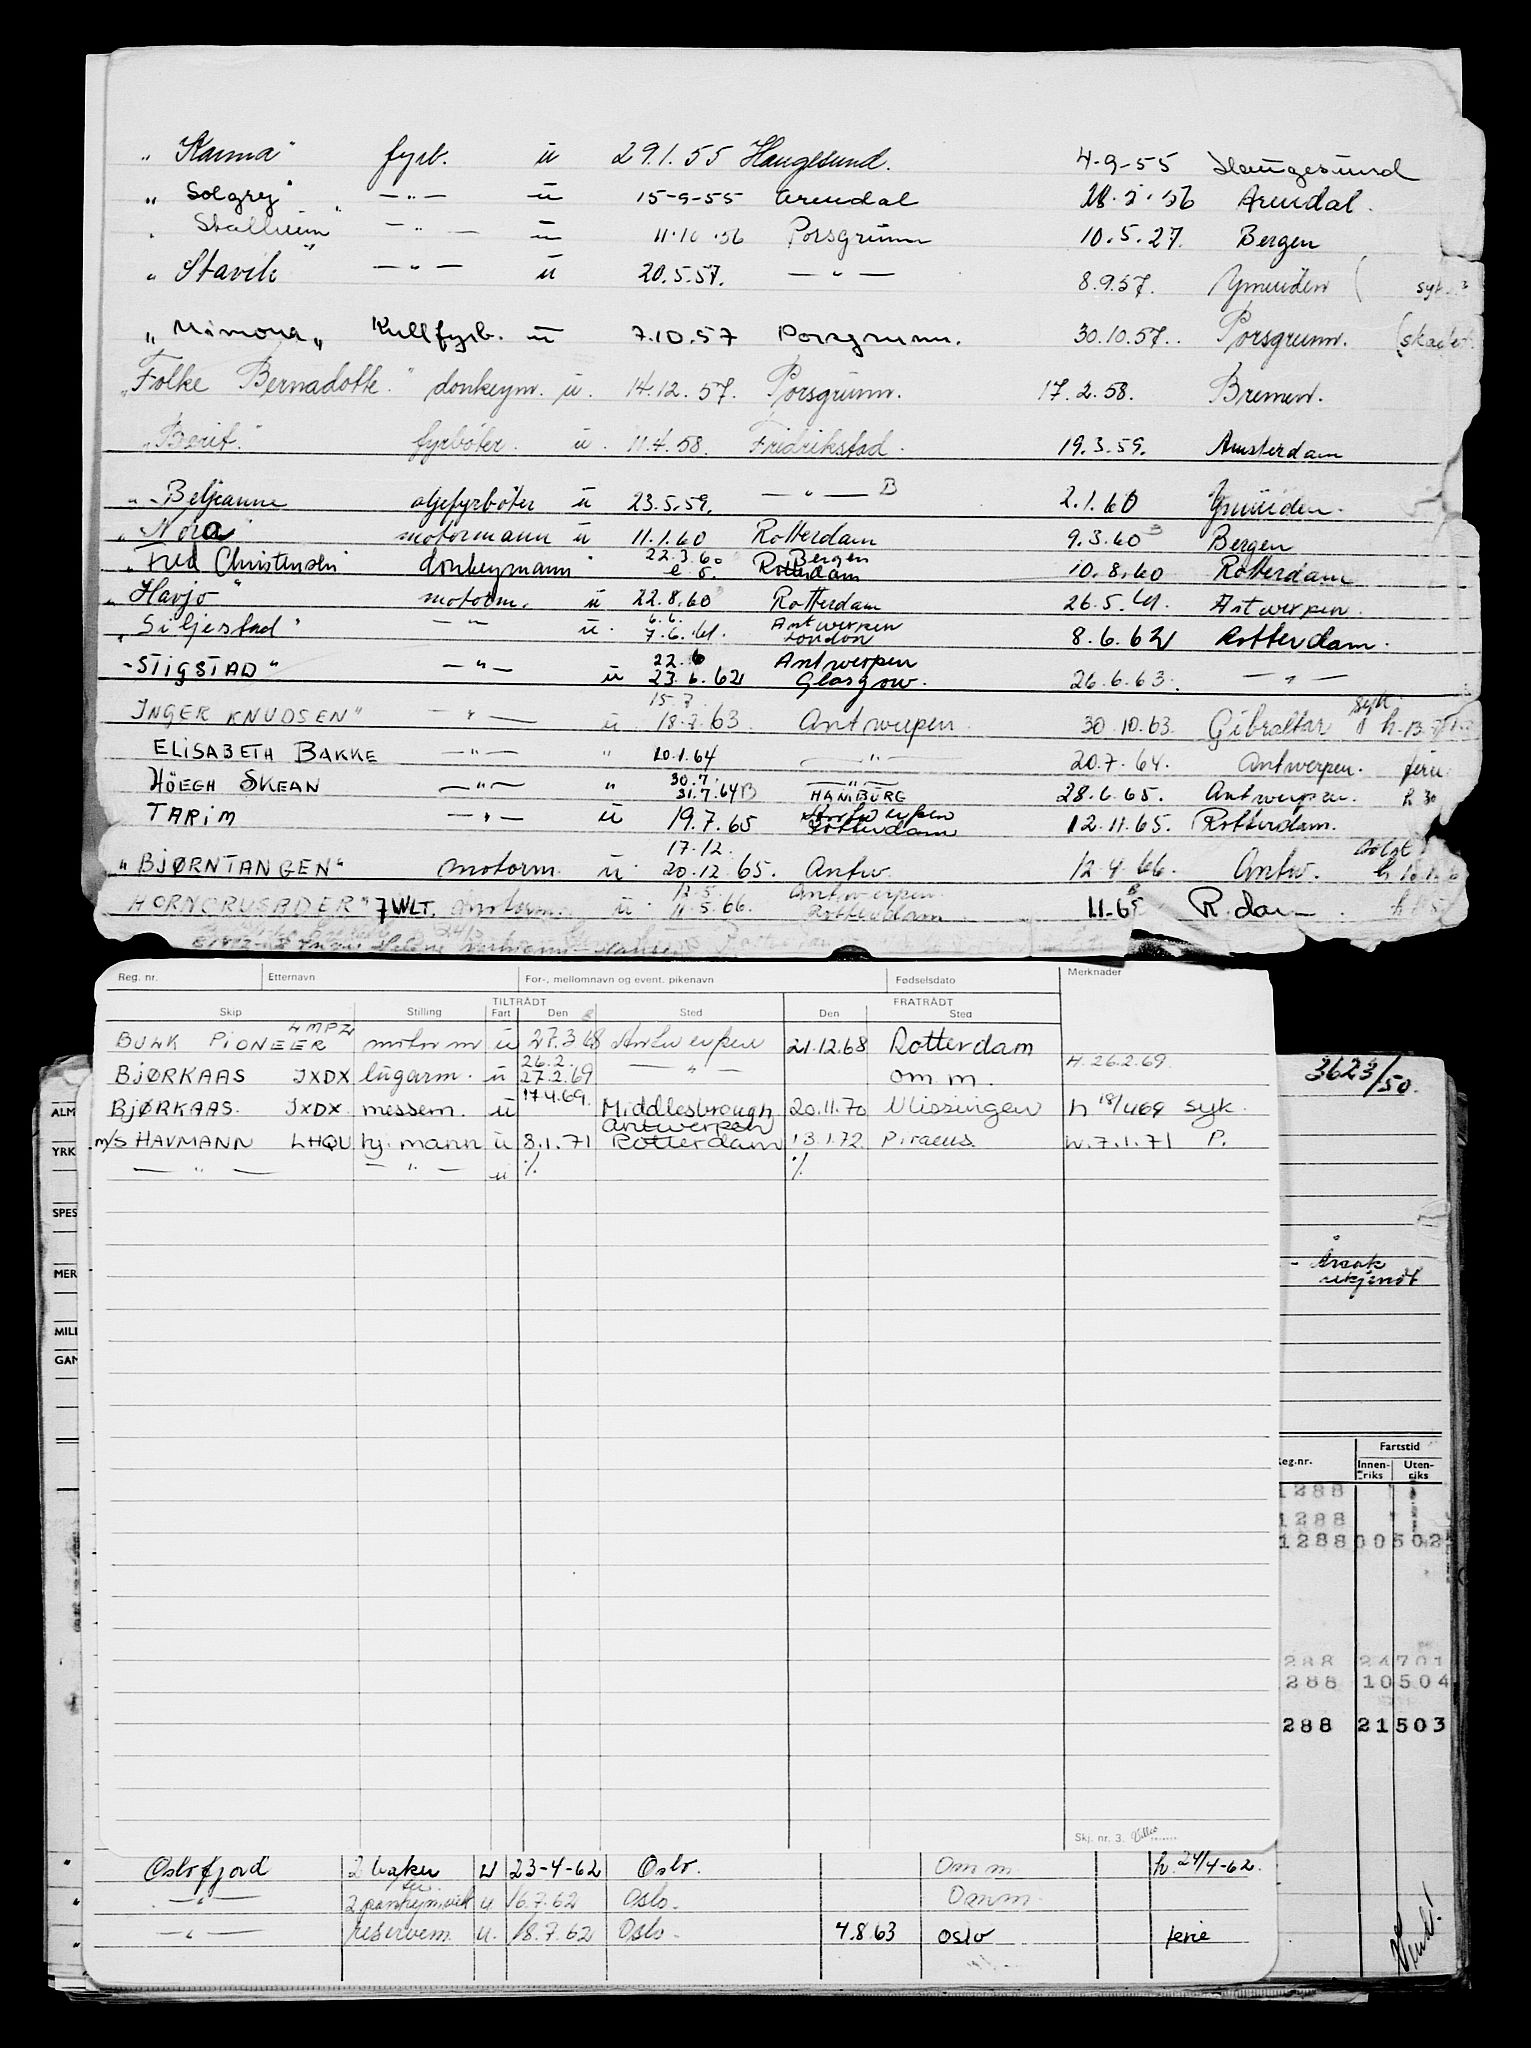 „ Karma" fyrb. u 29.1.55 Haugesund. 4-9-55 Haugesund
„ Solgry" —„— u 15-9-55 Arendal Arendal.
Stalheim" —„— u 11.10.56 Porsgrunn 10.5.27. Bergen
„ Stavik" —„— u 20.5.57. —„— 8.9.57. Ymuiden (
„ Mimona„ Kullfyrb. u 7.10.57 Porsgrunn. 30.10.57. Porsgrunn. (skadet
„Folke Bernadotte." donkeym. u. 14.12.57. Porsgrunn. 17.2.58. Bremen.
„Berit." fyrbøter. u. 11.4.58. Fridrikstad. 19.3.59. Amsterdam
„ Beljeanne oljefyrbøter u 23.5.59. —„— B 2.1.60 Ymuiden.
„Nora" motormann u 11.1.60 Rotterdam 9.3.60 B Bergen
„Fred Christensen donkeymann 22.3.60 Bergen 10.8.60 Rotterdam
e.o. Rotterdam
„Havjo" motorm. u 22.8.60 Rotterdam 26.5.61. Antwerpen.
6.6. Antwerpen
„Siljestad" —„— u. 7.6.61. London 8.6.62 Rotterdam.
22.6 Antwerpen
-STIGSTAD" —„— u 23.6.62 Glasgow. 26.6.63. —„—
15.7. syk
INGER KNUDSEN" —„— u 18.7.63 Antwerpen. 30.10.63. Gibraltar
ELISABETH BAKKE —„— " 20.1.64 —„— 20.7.64. Antwerpen. ferie
30.7. —„—
HÖEGH SKEAN —„— " 31.7.64 B HAMBURG 28.6.65. Antwerpen. h 30
Antwerpen
TARIM —„— u 19.7.65 Rotterdam 12.11.65. Rotterdam.
17.12.
„BJØRNTANGEN" motorm. u. 20.12.65. Antw. 12.4.66. Antw.
12.5. Antwerpen
HORNCRUSADER" 7 WLT. motorm. u. 11.5.66. Rotterdam R.dam
Reg. nr. Etternavn For-, mellomnavn og event. pikenavn Fødselsdato Merknader
TILTRÅDT FRATRÅDT
Skip Stilling Fart Den Sted Den Sted
LMPZ
BULK PIONEER motorm u 27.3.68 Antwerpen 21.12.68 Rotterdam
26.2. H. 26.2.69.
BJØRKAAS JXDX lugarm. u 27.2.69 —„— om m.
BJØRKAAS. JXDX. messem. u 17.4.69. Middlesbrough 20.11.70 Vlissingen h 18/4 69 syk.
Antwerpen
m/s HAVMANN LHQU hj. mann u 8.1.71 Rotterdam 13.1.72. Piraeus. h. 7.1.71 P.
—„— —„— u % %
Skj. nr. 3.
3623/50.
ALM
YRK
SPES
MER
MILI
GAN
- Årsak
ukjendt
Reg.nr. Fartstid
Innen-riks Uten-riks
1288
1288
1288 00502
288 24701
288 10504
288 21503
" Oslofjord 2 baker u 23-4-62 Oslo. Om m. h. 24/4-62.
" —„— u 16.7.62 Oslo. Omm.
" —„— reservem. u. 18.7.62 Oslo. 4.8.63 Oslo ferie
Vend!